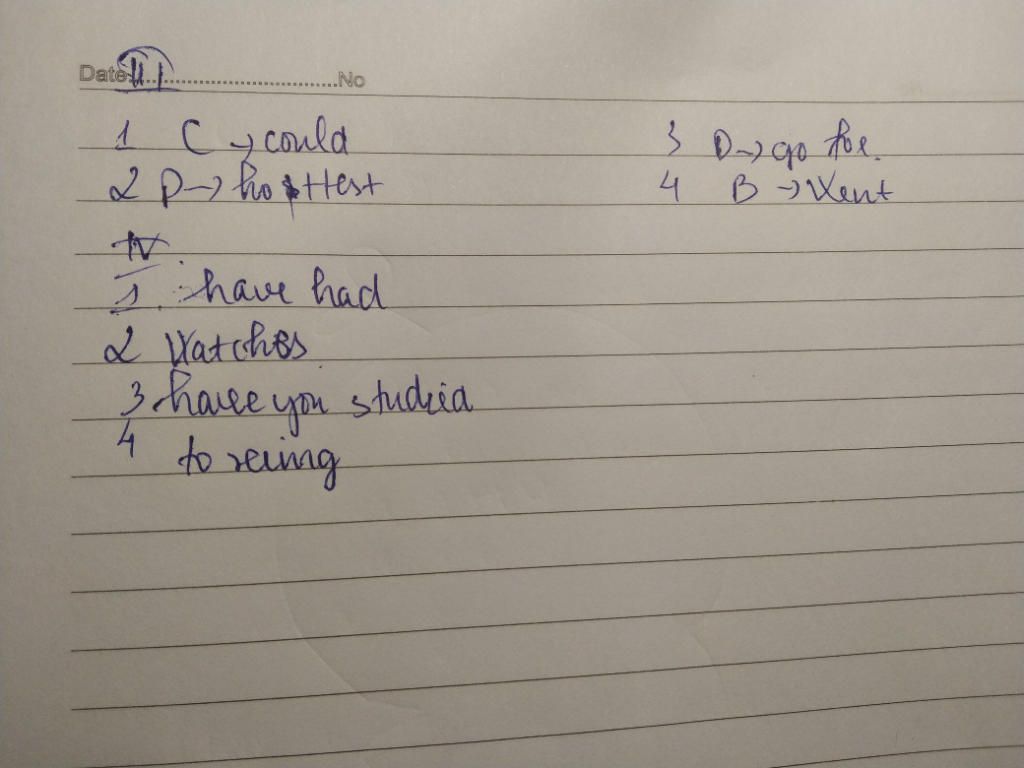 Date III No
1 C → could
2 D → hottest
3 D → go for.
4 B → Went
IV.
1. have had
2 Watches
3. have you studied
4 to